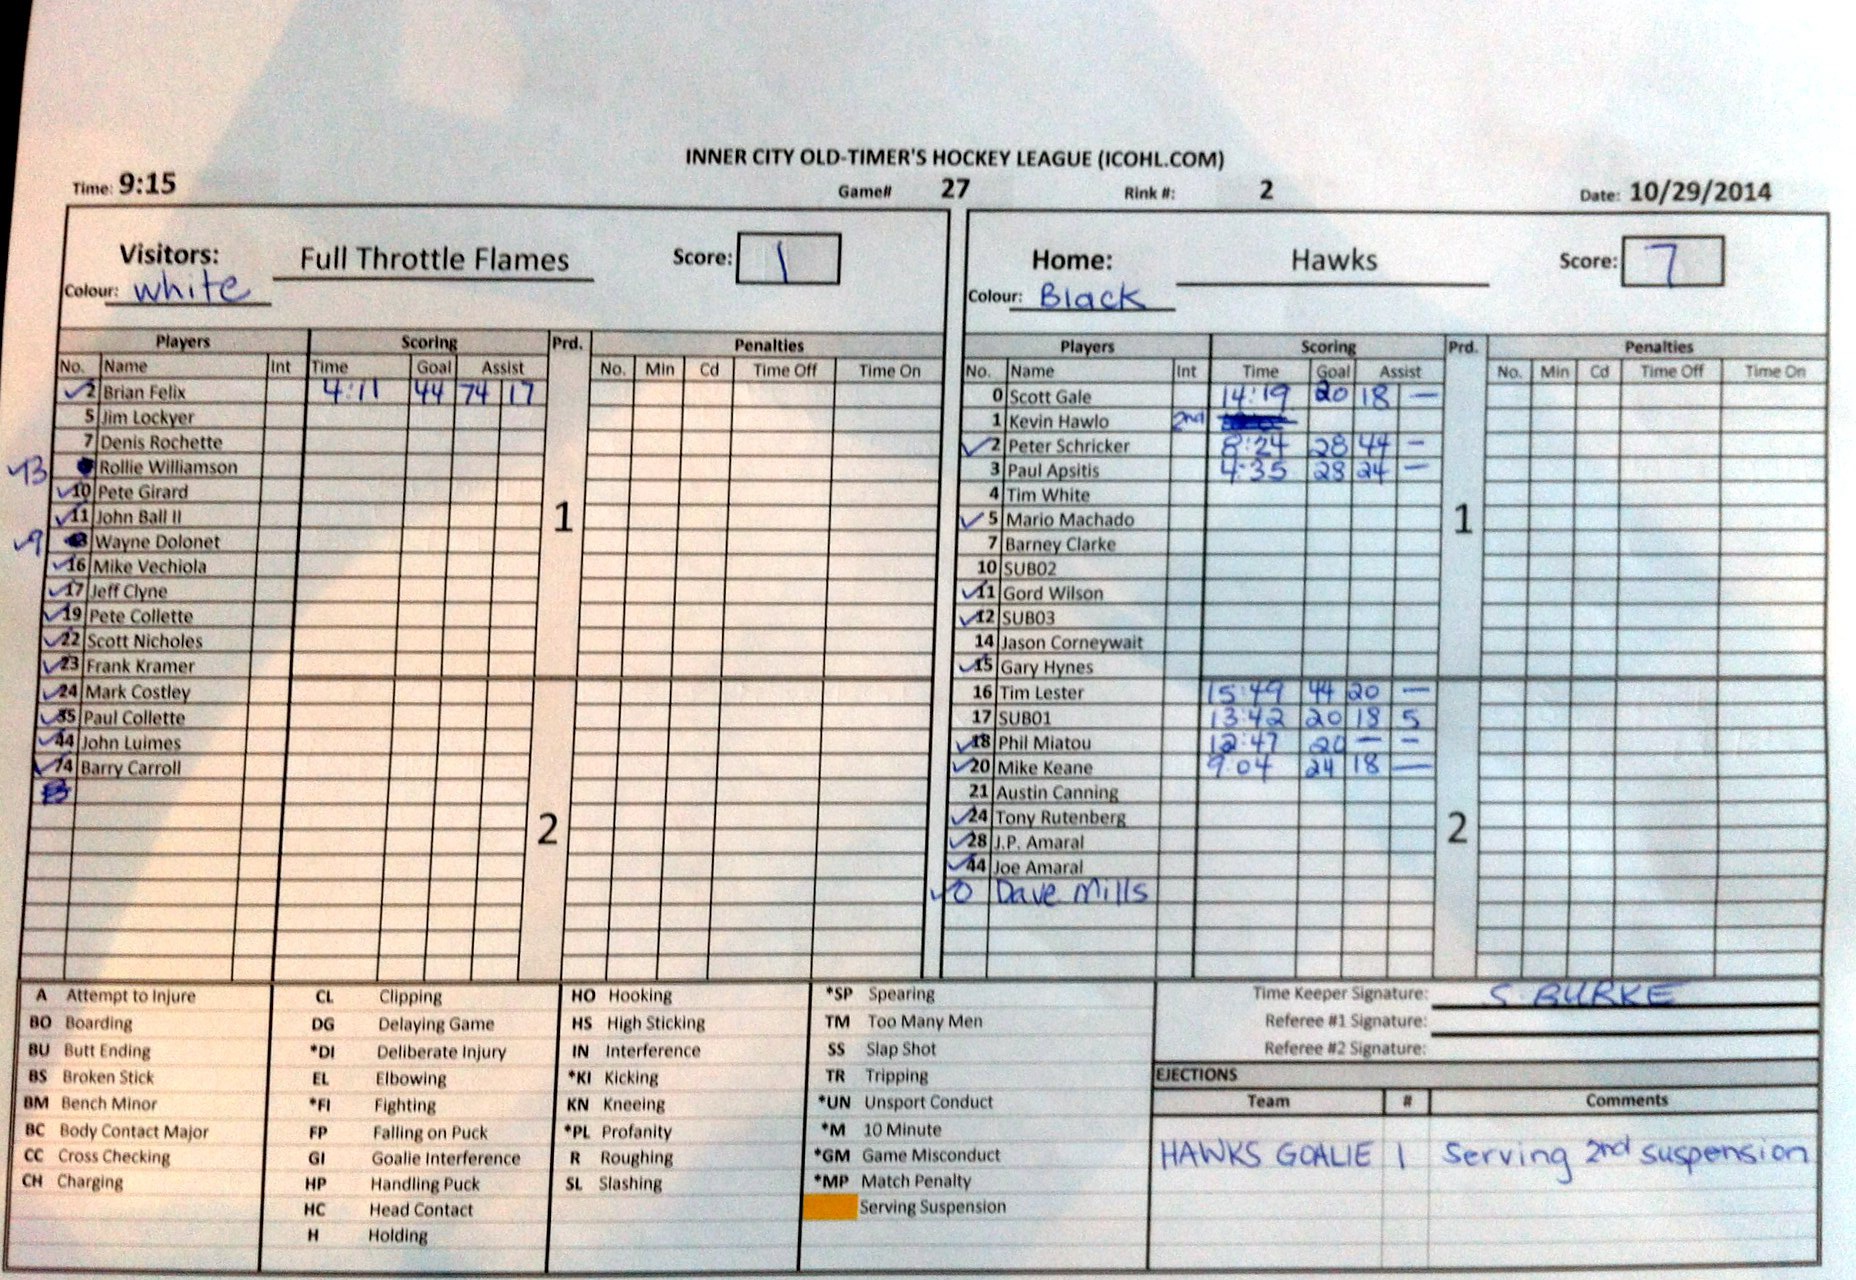 INNER CITY OLD-TIMER'S HOCKEY LEAGUE (ICOHL.COM)
Time: 9:15 Game# 27 Rink #: 2 Date: 10/29/2014
Visitors: Full Throttle Flames Score: 1
Colour: white
Players Scoring Prd. Penalties
No. Name Int Time Goal Assist No. Min Cd Time Off Time On
✓2 Brian Felix 4:11 44 74 17
5 Jim Lockyer
7 Denis Rochette
✓13 Rollie Williamson
✓10 Pete Girard
✓11 John Ball II 1
✓9 Wayne Dolonet
✓16 Mike Vechiola
✓17 Jeff Clyne
✓19 Pete Collette
✓22 Scott Nicholes
✓23 Frank Kramer
✓24 Mark Costley
✓35 Paul Collette
✓44 John Luimes
✓74 Barry Carroll
2
Home: Hawks Score: 7
Colour: Black
Players Scoring Prd. Penalties
No. Name Int Time Goal Assist No. Min Cd Time Off Time On
0 Scott Gale 14:19 20 18 —
1 Kevin Hawlo 2nd
✓2 Peter Schricker 8:24 28 44 —
3 Paul Apsitis 4:35 28 24 —
4 Tim White
✓5 Mario Machado 1
7 Barney Clarke
10 SUB02
✓11 Gord Wilson
✓12 SUB03
14 Jason Corneywait
✓15 Gary Hynes
16 Tim Lester 15:49 44 20 —
17 SUB01 13:42 20 18 5
✓18 Phil Miatou 12:47 20 — —
✓20 Mike Keane 9:04 24 18 —
21 Austin Canning
✓24 Tony Rutenberg 2
✓28 J.P. Amaral
✓44 Joe Amaral
✓0 Dave Mills
A Attempt to Injure
BO Boarding
BU Butt Ending
BS Broken Stick
BM Bench Minor
BC Body Contact Major
CC Cross Checking
CH Charging
CL Clipping
DG Delaying Game
*DI Deliberate Injury
EL Elbowing
*FI Fighting
FP Falling on Puck
GI Goalie Interference
HP Handling Puck
HC Head Contact
H Holding
HO Hooking
HS High Sticking
IN Interference
*KI Kicking
KN Kneeing
*PL Profanity
R Roughing
SL Slashing
*SP Spearing
TM Too Many Men
SS Slap Shot
TR Tripping
*UN Unsport Conduct
*M 10 Minute
*GM Game Misconduct
*MP Match Penalty
Serving Suspension
Time Keeper Signature: S. BURKE
Referee #1 Signature:
Referee #2 Signature:
EJECTIONS
Team # Comments
HAWKS GOALIE 1 Serving 2nd suspension